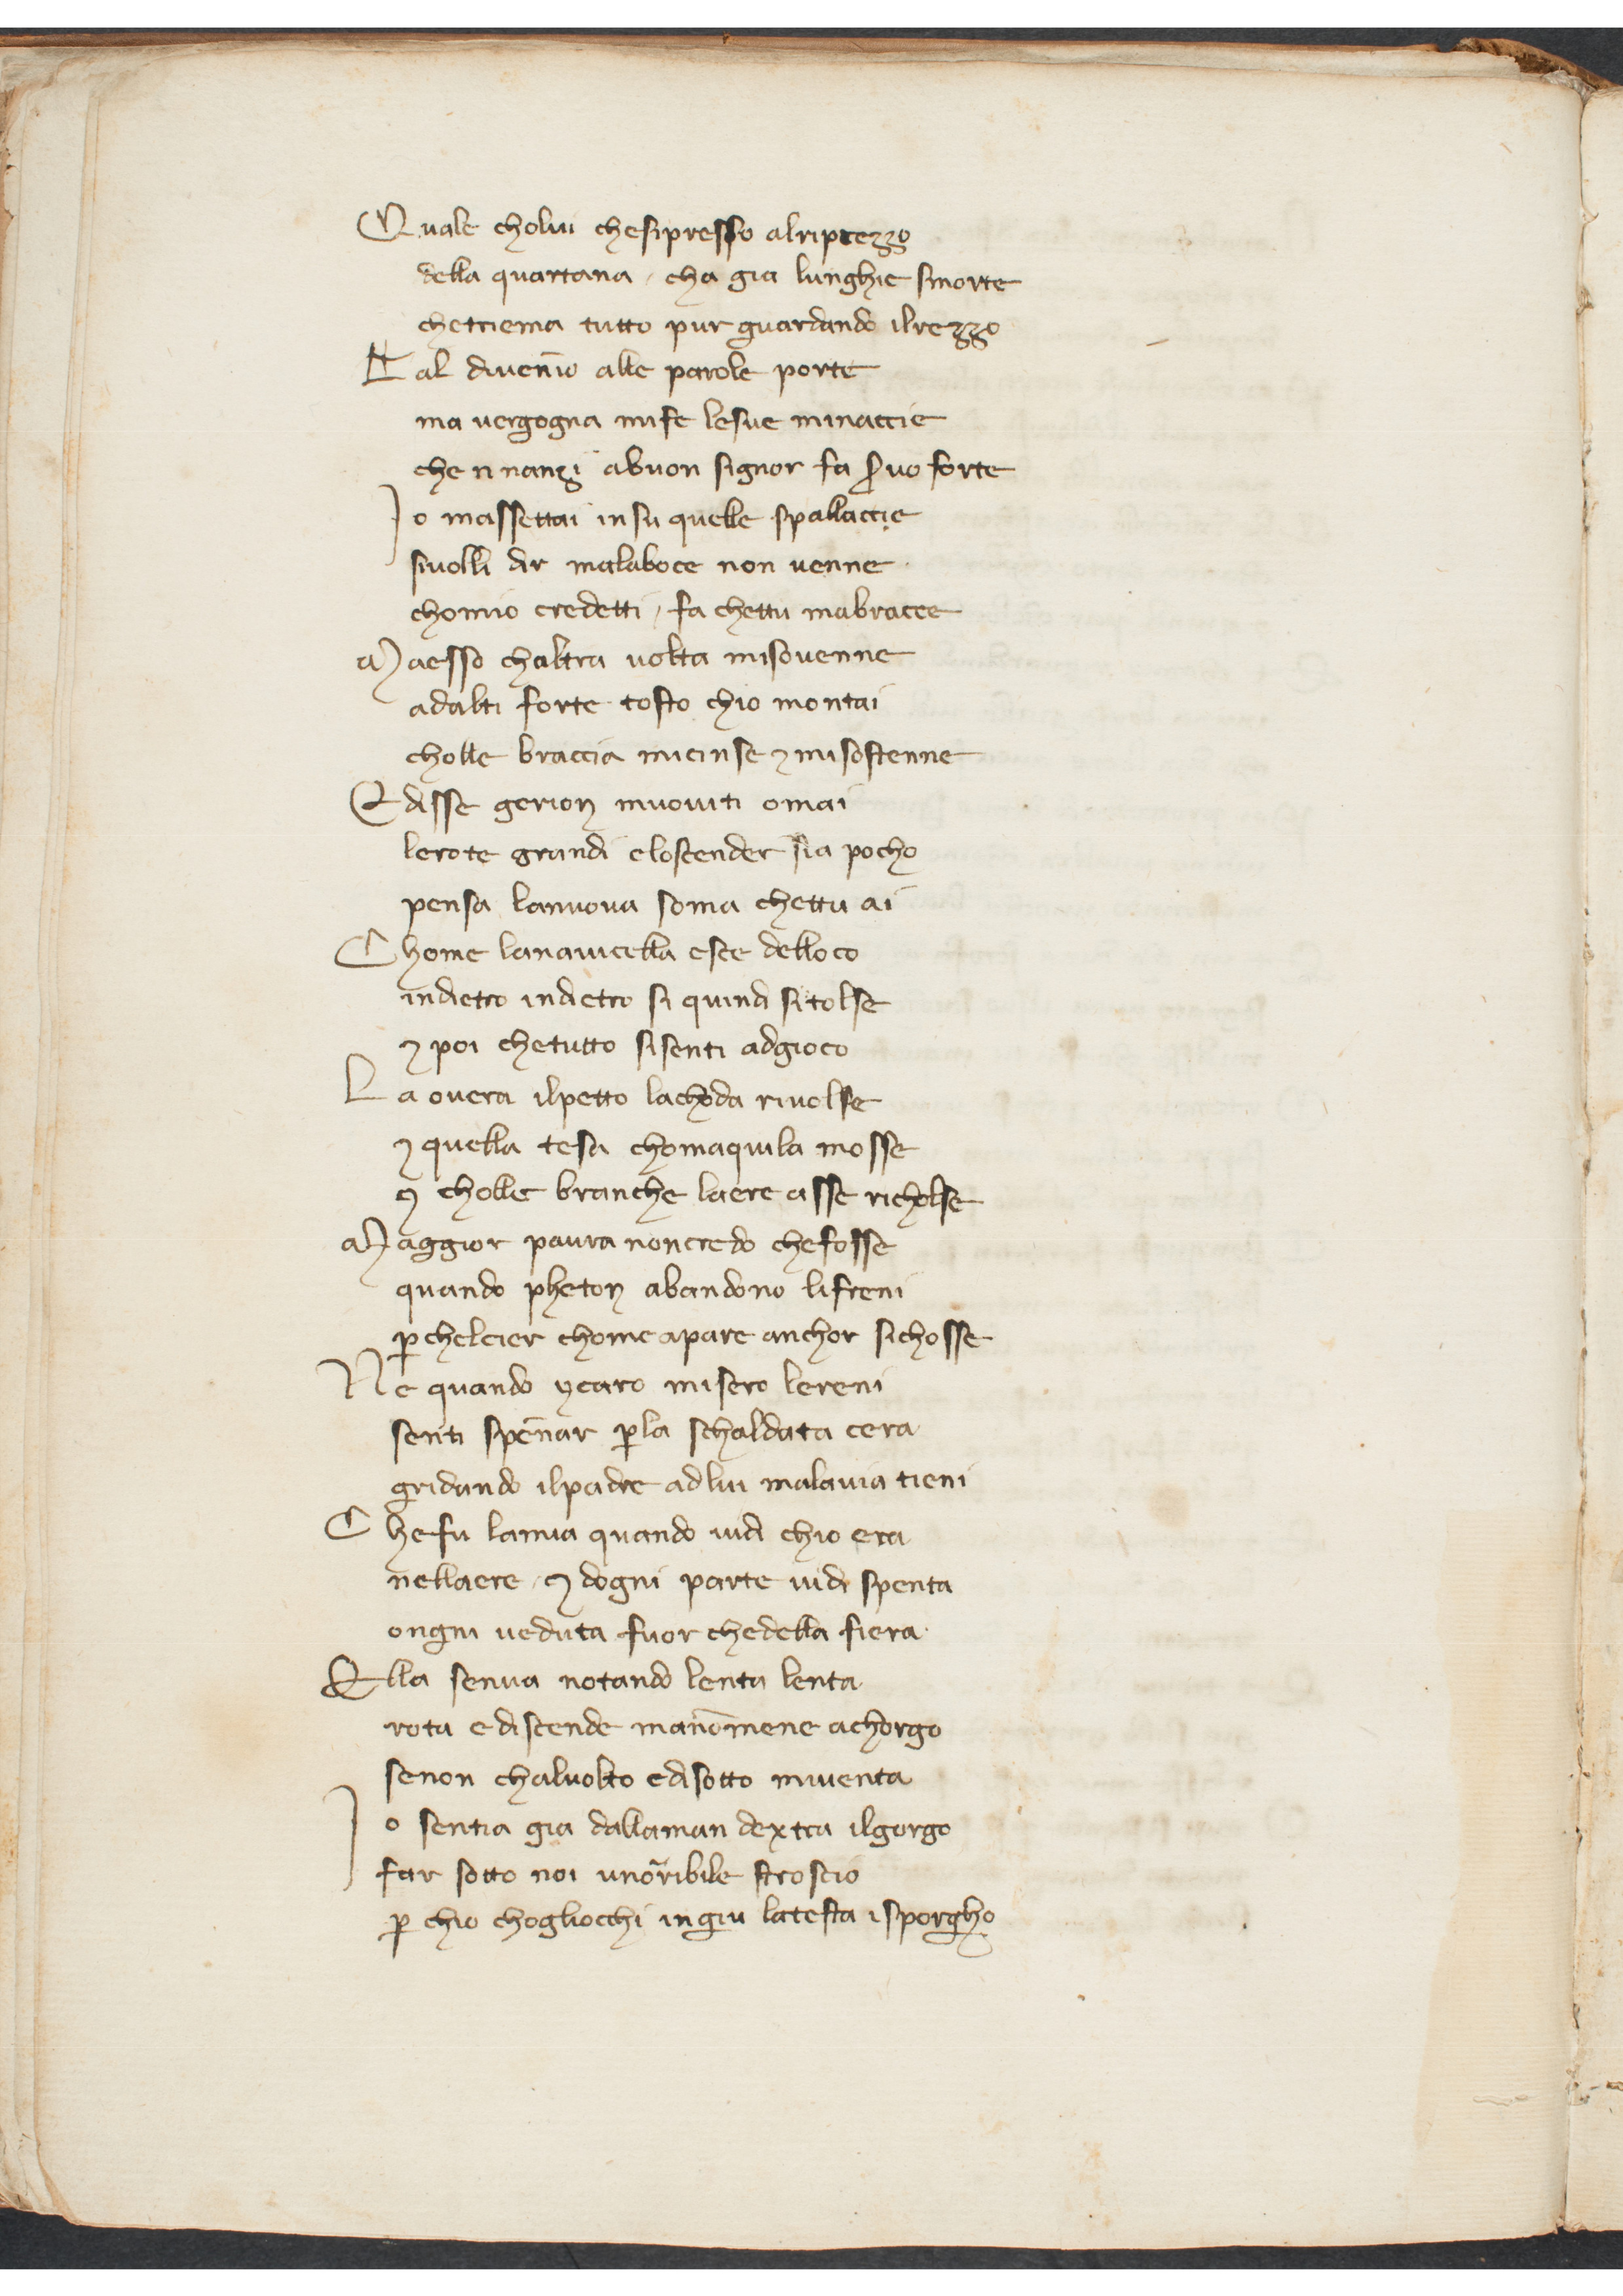 Quale cholui chesipresso alripreззo
della quartana / cha gia lunghie smorte
chetriema tutto pur guardando ilrezzo
Tal diveni͂o alle parole porte
ma vergogna mife lesue minaccie
che nnanzi abuon signor fa ꝓuo forte
Io massettai insu quelle spallaccie
siuolli dir malaboce non venne
chomio credetti / fa chettu mabracce
Maesso chaltra volta misovenne
adalti forte tosto chio montai
cholle braccia micinse ⁊ misostenne
Edisse gerion muoviti omai
lerote grandi eloscender sia pocho
pensa lanuova soma chettu ai
Chome lanauicella esce delloco
indietro indietro si quindi sitolse
⁊ poi chetutto sisenti adgioco
La ouera ilpetto lachoda rivolse
⁊ quella tesa chomaquila mosse
⁊ cholle branche laere asse richolse
Maggior paura noncredo chefosse
quando pheton abandono lifreni
ꝑchelcier chome apare anchor sichosse
Ne quando ycaro misero lereni
senti spe͂nar ꝑla schaldata cera
gridando ilpadre adlui malauia tieni
Chefu lamia quando uidi chio era
nellaere / ⁊ dogni parte uidi spenta
ongni veduta fuor chedella fiera
Ella senua notando lenta lenta
rota e discende mano͂mene achorgo
senon chaluolto edisotto miventa
Io sentia gia dallaman dextra ilgorgo
far sotto noi uno͂ribile stroscio
ꝑ chio chogliocchi ingiu latesta isporgho